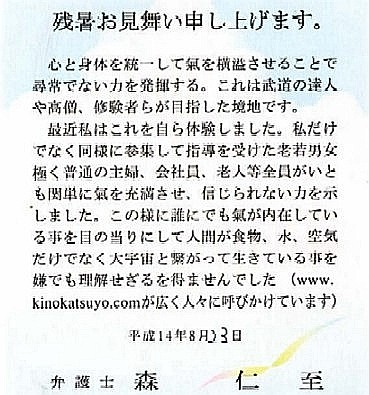 残暑お見舞い申し上げます。
心と身体を統一して氣を横溢させることで
尋常でない力を発揮する。これは武道の達人
や高僧、修験者らが目指した境地です。
最近私はこれを自ら体験しました。私だけ
でなく同様に参集して指導を受けた老若男女
極く普通の主婦、会社員、老人等全員がいと
も関単に氣を充満させ、信じられない力を示
しました。この様に誰にでも氣が内在してい
る事を目の当りにして人間が食物、水、空気
だけでなく大宇宙と繋がって生きている事を
嫌でも理解せざるを得ませんでした（www.
kinokatsuyo.comが広く人々に呼びかけています）
平成14年8月23日
弁護士 森 仁 至